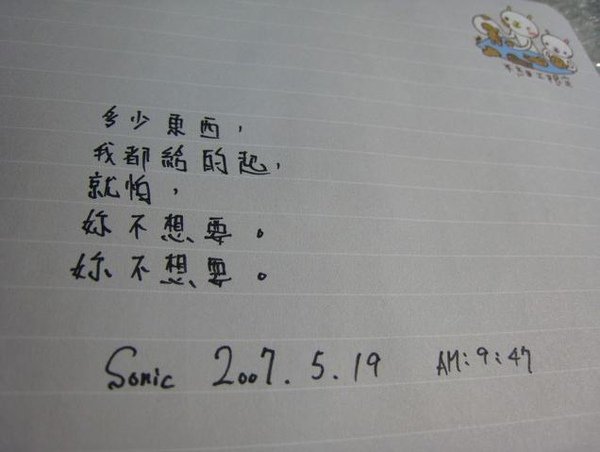 多少東西，
我都給的起，
就怕，
妳不想要。
妳不想要。
Sonic 2007.5.19 AM:9:47